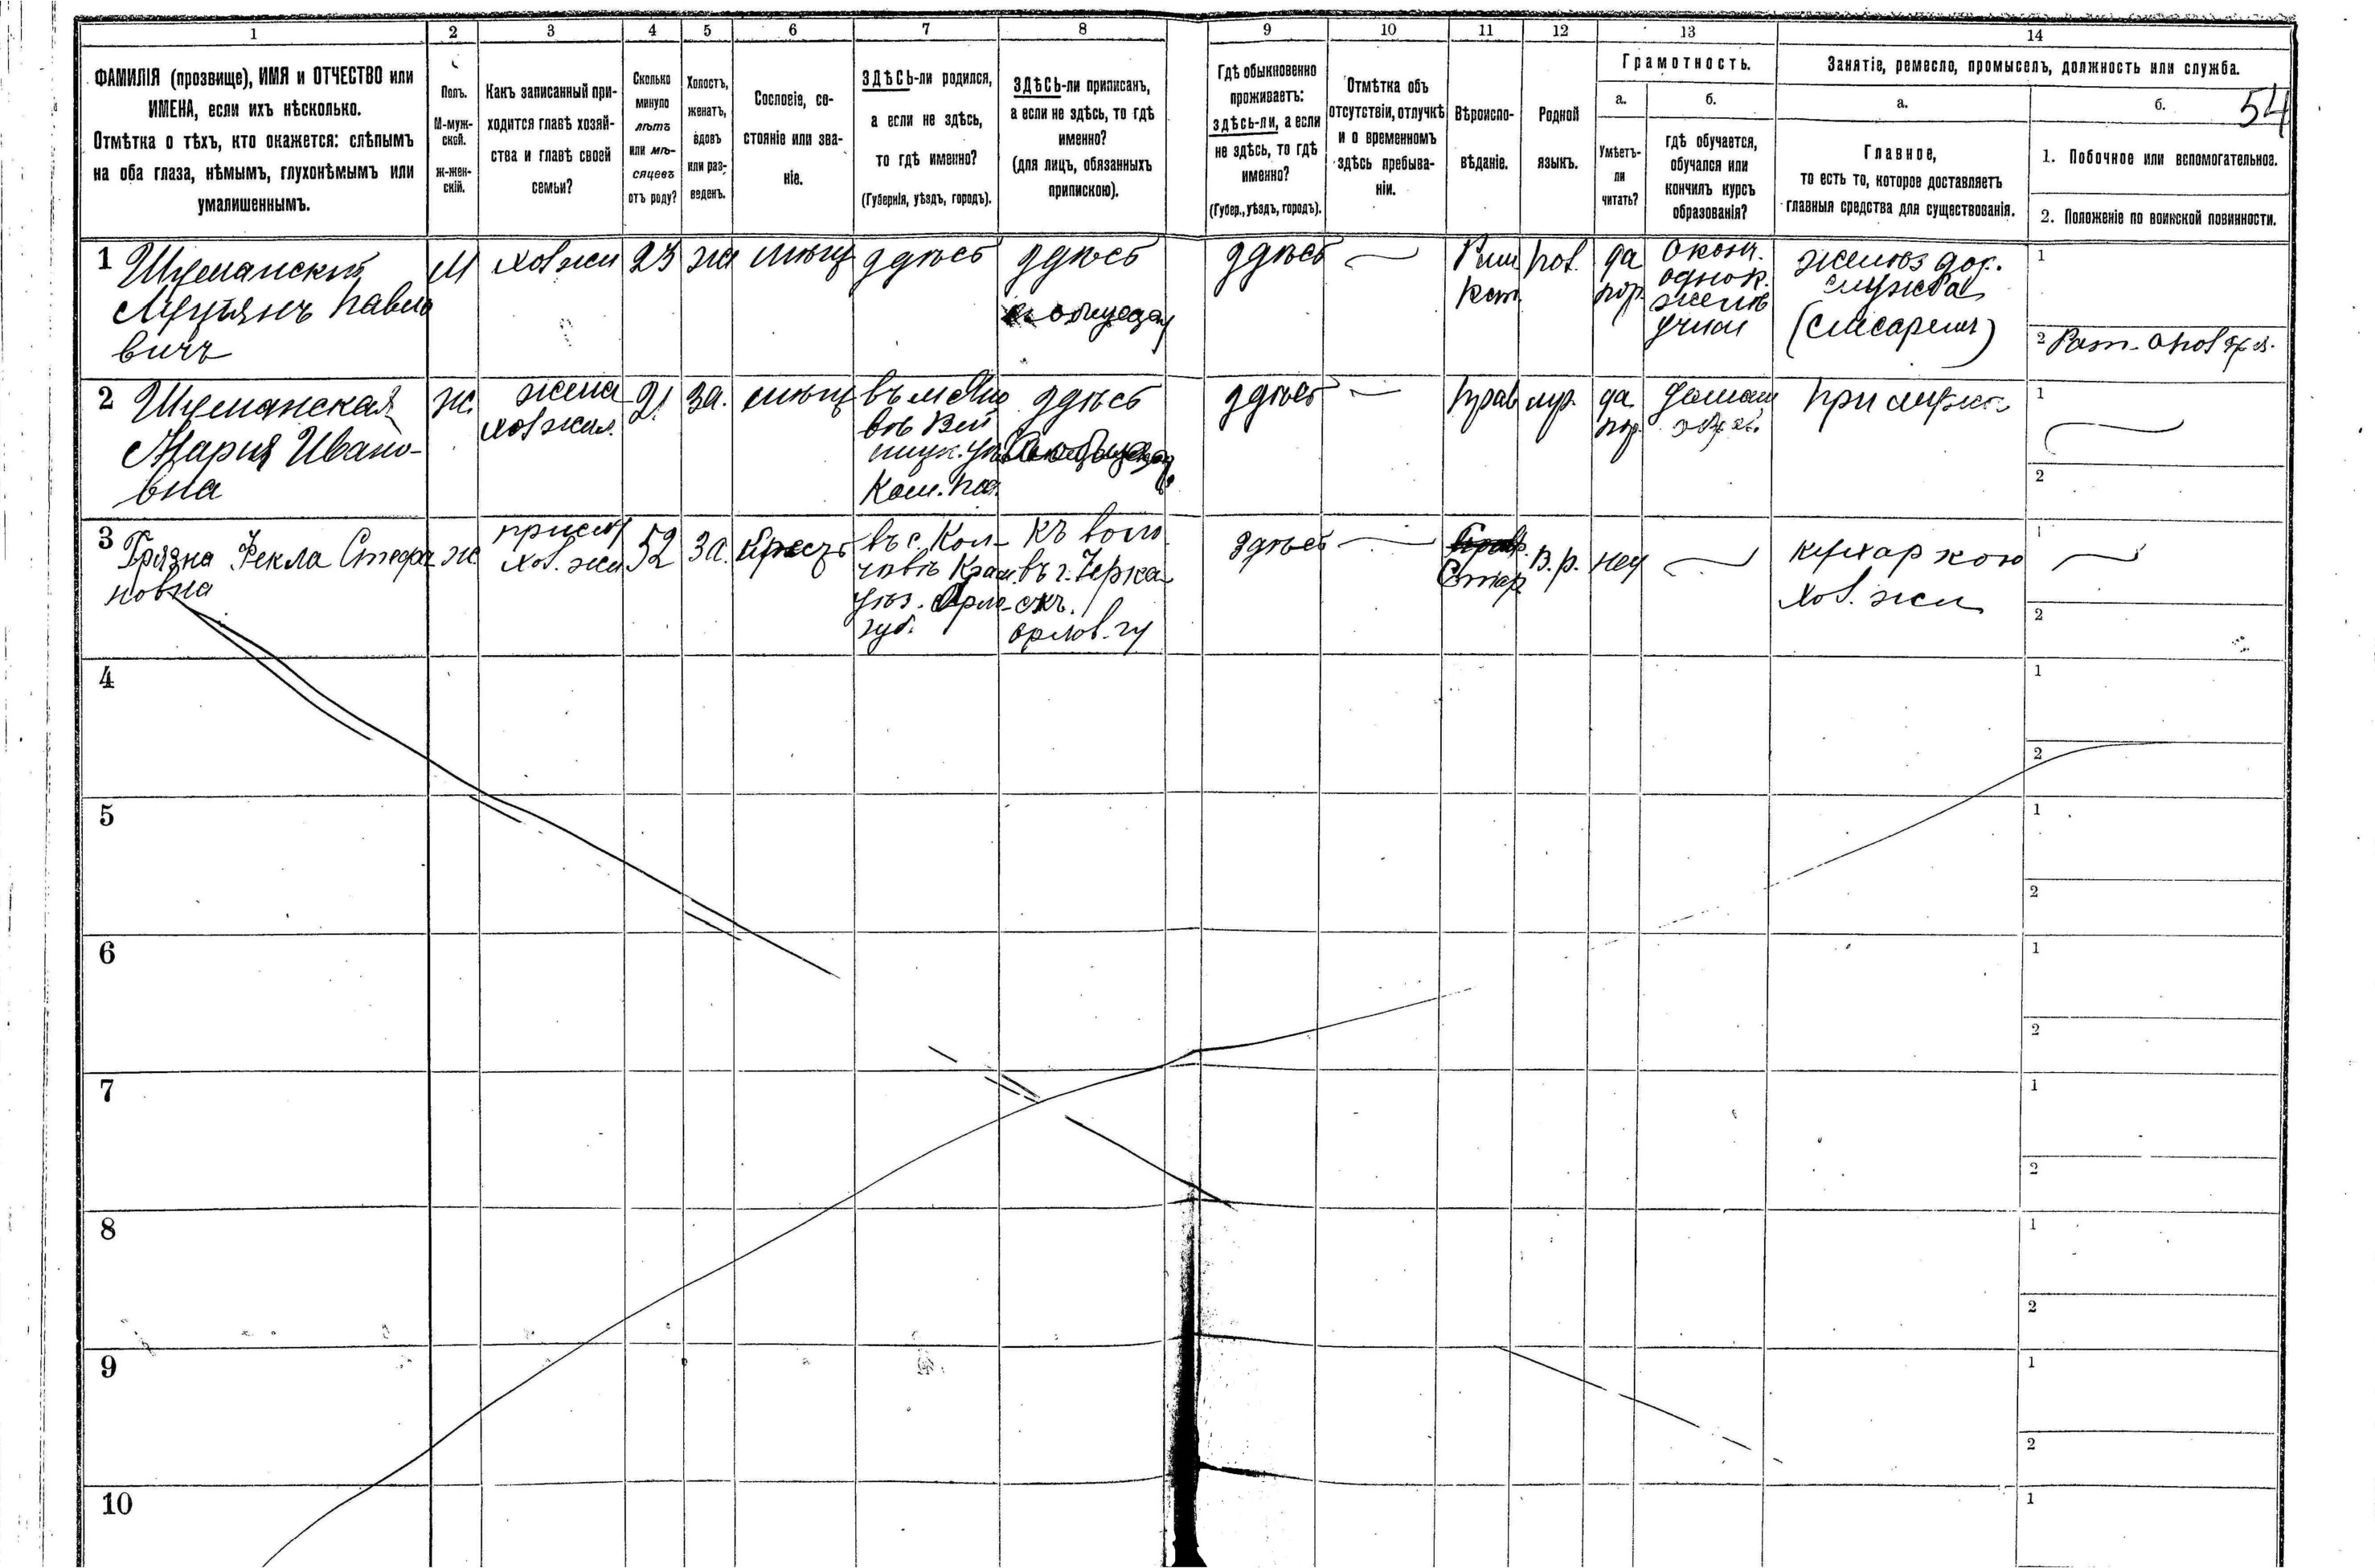 1 2 3 4 5 6 7 8 9 10 11 12 13 14
ФАМИЛІЯ (прозвище), ИМЯ и ОТЧЕСТВО или
ИМЕНА, если ихъ нѣсколько.
Отмѣтка о тѣхъ, кто окажется: слѣпымъ
на оба глаза, нѣмымъ, глухонѣмымъ или
умалишеннымъ.
Полъ.
М-муж-
ской.
ж-жен-
скій.
Какъ записанный при-
ходится главѣ хозяй-
ства и главѣ своей
семьи?
Сколько
минуло
лѣтъ
или мѣ-
сяцевъ
отъ роду?
Холостъ,
женатъ,
вдовъ
или раз-
веденъ.
Сословіе, со-
стояніе или зва-
ніе.
ЗДѢСЬ-ли родился,
а если не здѣсь,
то гдѣ именно?
(Губернія, уѣздъ, городъ).
ЗДѢСЬ-ли приписанъ,
а если не здѣсь, то гдѣ
именно?
(для лицъ, обязанныхъ
припискою).
Гдѣ обыкновенно
проживаетъ:
здѣсь-ли, а если
не здѣсь, то гдѣ
именно?
(Губер., уѣздъ, городъ).
Отмѣтка объ
отсутствіи, отлучкѣ
и о временномъ
здѣсь пребыва-
ніи.
Вѣроиспо-
вѣданіе.
Родной
языкъ.
Грамотность.
а.
Умѣетъ-
ли
читать?
б.
Гдѣ обучается,
обучался или
кончилъ курсъ
образованія?
Занятіе, ремесло, промыселъ, должность или служба.
а.
Главное,
то есть то, которое доставляетъ
главныя средства для существованія.
б.
54
1. Побочное или вспомогательное.
2. Положеніе по воинской повинности.
1
Шуманскій
Луціянъ Павло
вичъ
М
хозяи
23
же
мѣщ
здѣсь
здѣсь
здѣсь
—
Рим
Кат
пол.
да
окон.
однок.
желѣз
учил
желѣз дор.
служба
(слесарем)
1
2
2
Шуманская
Мария Ивано-
вна
ж.
жена
хозяи.
21
за.
мѣщ
въ м.
здѣсь
здѣсь
—
прав
да
домаш
при мужѣ
1
2
3
Грязна Фекла Стефа
новна
ж.
хоз. яи
52
за.
въ с.
уѣз. Орло
губ.
къ воло
въ г. Черка
скъ.
орлов. гу
здѣсь
—
Стар
В.р.
нет
—
кухаркою
хоз. яи
1
2
4
1
2
5
1
2
6
1
2
7
1
2
8
1
2
9
1
2
10
1